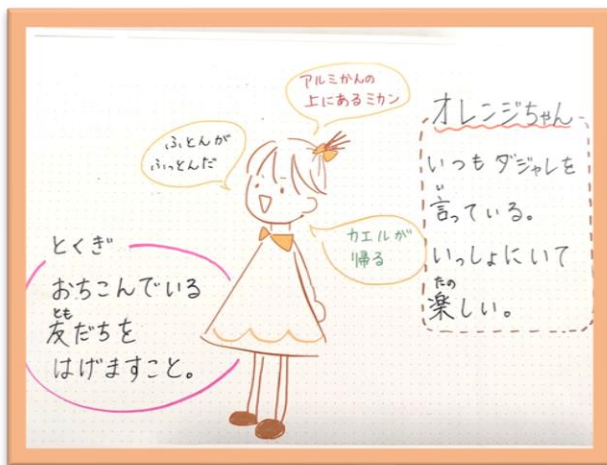 アルミかんの
上にあるミカン
ふとんが
ふっとんだ
カエルが
帰る
オレンジちゃん
いつもダジャレを
い
言っている。
いっしょにいて
たの
楽しい。
とくぎ
おちこんでいる
とも
友だちを
はげますこと。